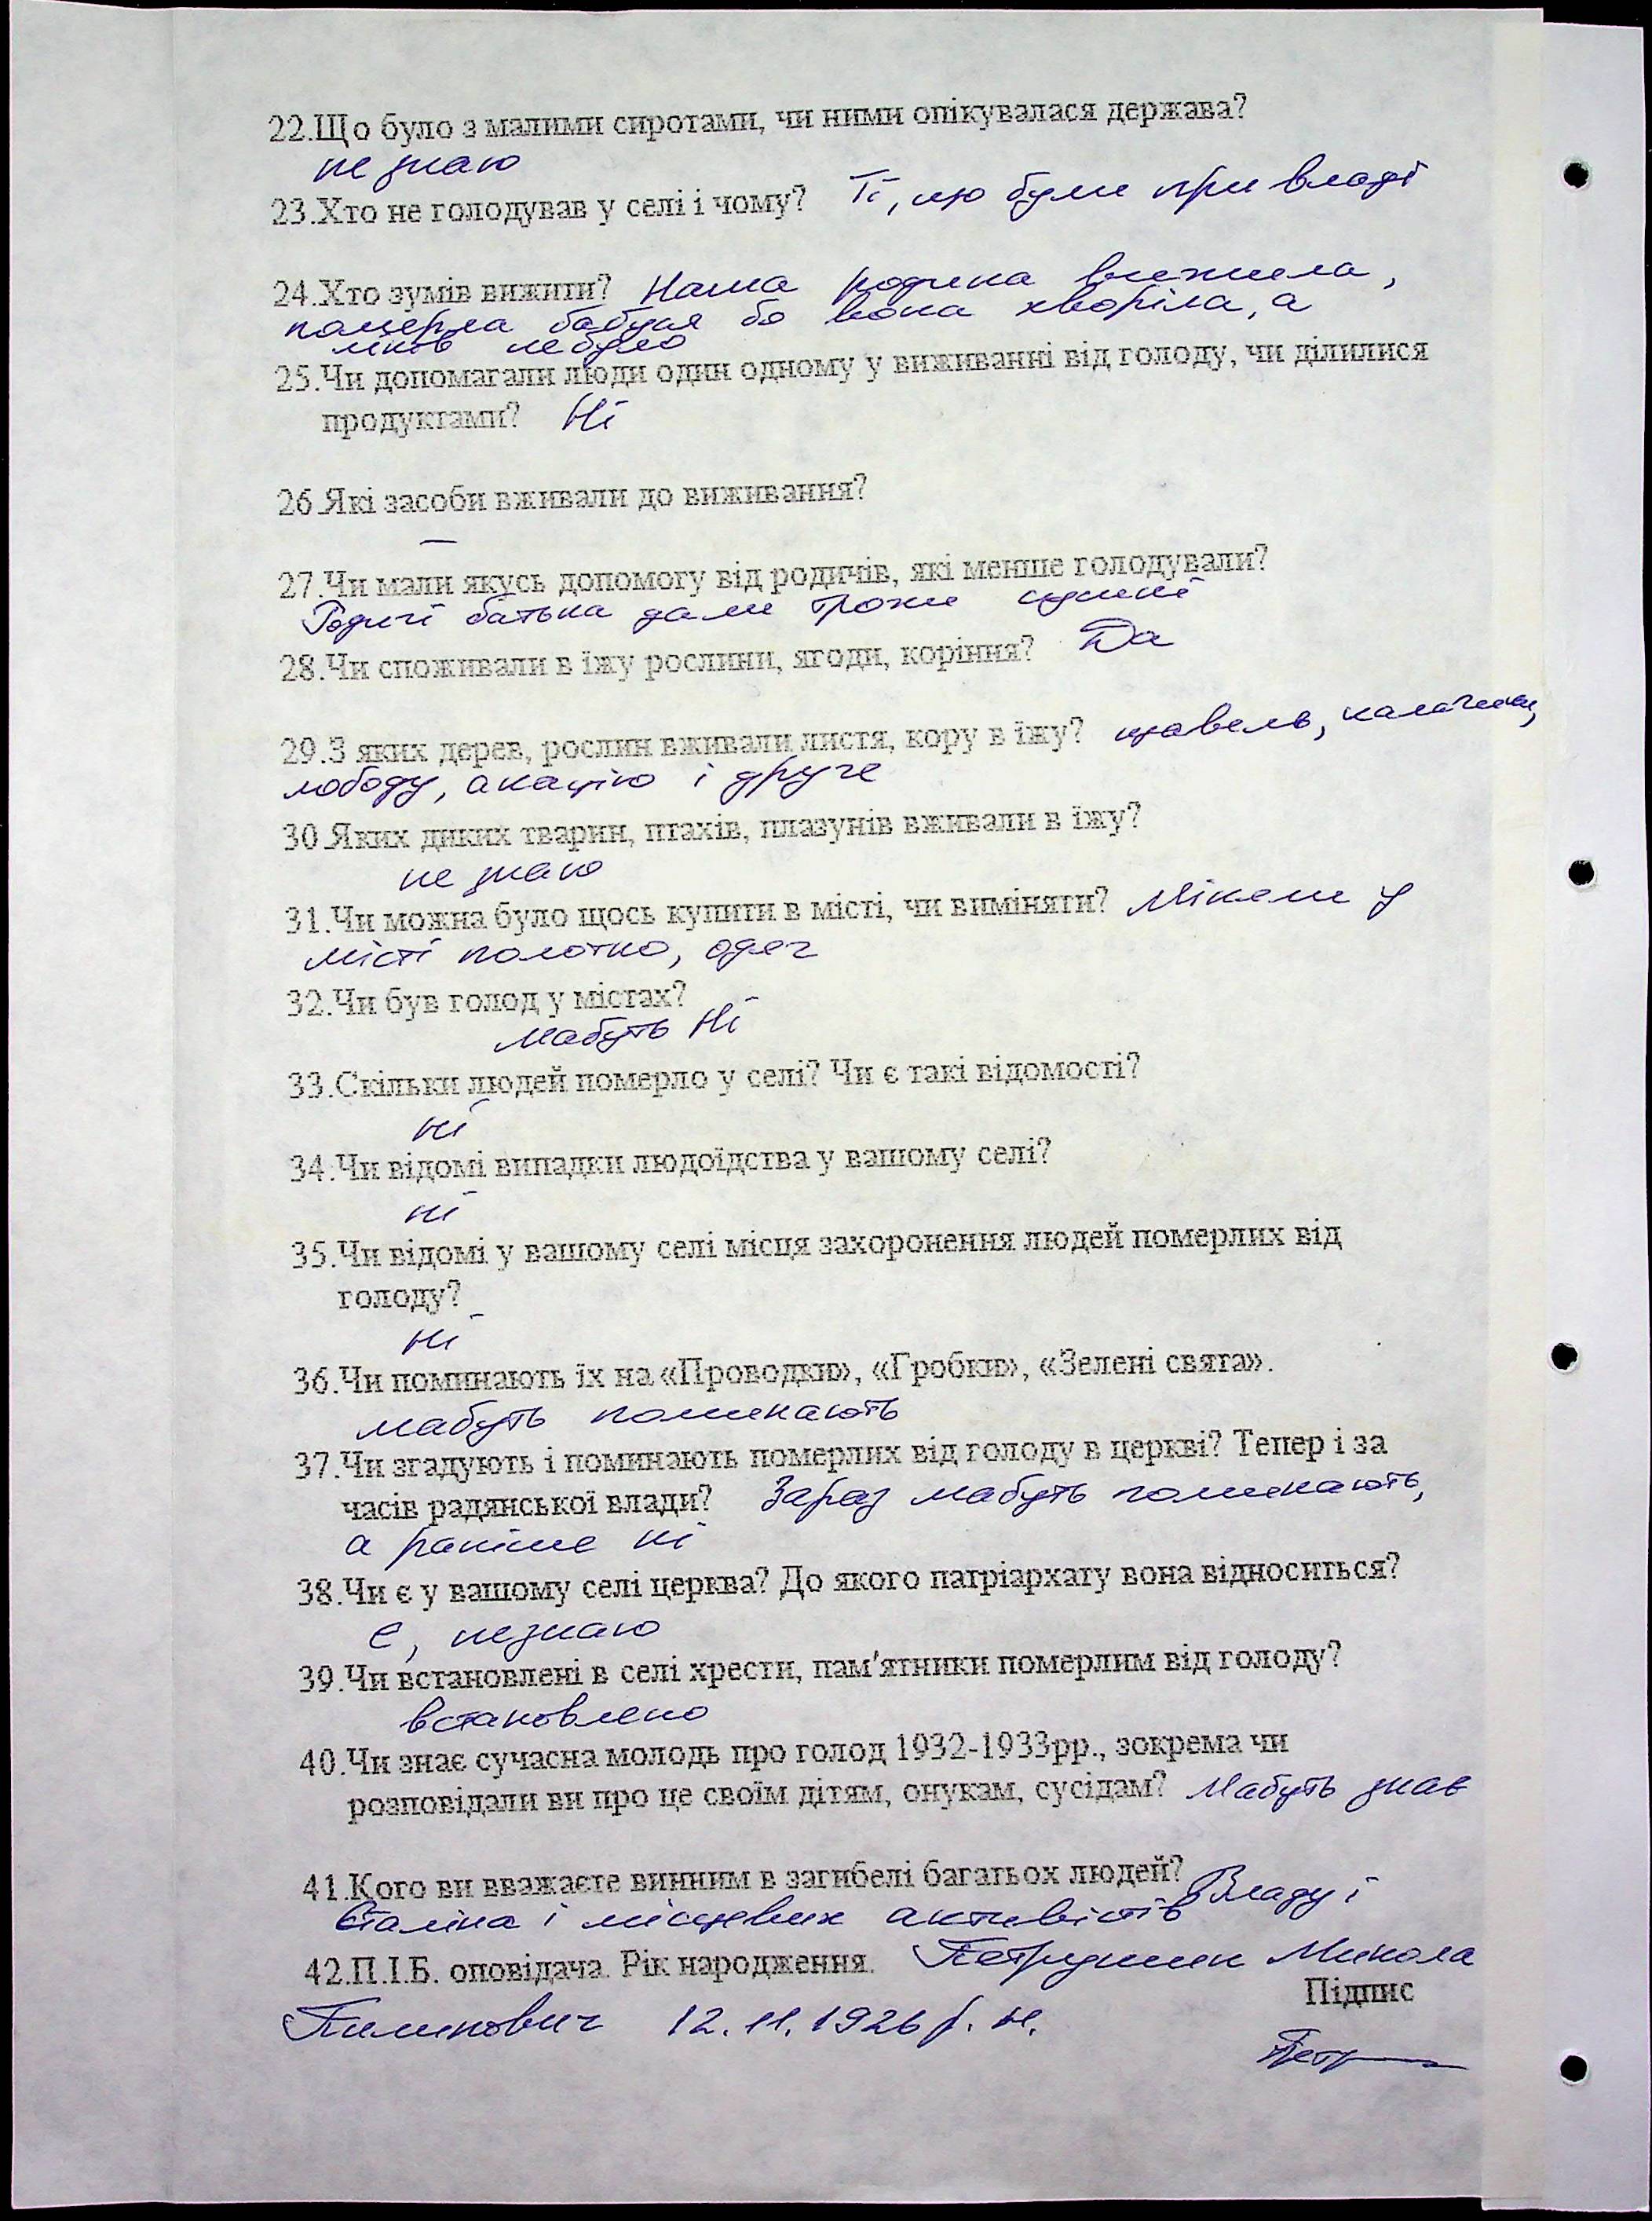 22.Що було з малими сиротами, чи ними опікувалася держава?
не знаю
23.Хто не голодував у селі і чому? Ті, що були при владі
24.Хто зумів вижити? Наша родина вижила,
померла бабуся бо вона хворіла, а
ліків небуло
25.Чи допомагали люди один одному у виживанні від голоду, чи ділилися
продуктами? Ні
26.Які засоби вживали до виживання?
–
27.Чи мали якусь допомогу від родичів, які менше голодували?
Родичі батька дали трохи
28.Чи споживали в їжу рослини, ягоди, коріння? Да
29.З яких дерев, рослин вживали листя, кору в їжу? щавель, калачики,
лободу, акацію і друге
30.Яких диких тварин, птахів, плазунів вживали в їжу?
не знаю
31.Чи можна було щось купити в місті, чи виміняти? Міняли у
місті полотно, одяг
32.Чи був голод у містах?
мабуть Ні
33.Скільки людей померло у селі? Чи є такі відомості?
ні
34.Чи відомі випадки людоїдства у вашому селі?
ні
35.Чи відомі у вашому селі місця захоронення людей померлих від
голоду?
ні
36.Чи поминають їх на «Проводки», «Гробки», «Зелені свята».
мабуть поминають
37.Чи згадують і поминають померлих від голоду в церкві? Тепер і за
часів радянської влади? Зараз мабуть поминають,
а раніше ні
38.Чи є у вашому селі церква? До якого патріархату вона відноситься?
є, незнаю
39.Чи встановлені в селі хрести, пам'ятники померлим від голоду?
встановлено
40.Чи знає сучасна молодь про голод 1932-1933рр., зокрема чи
розповідали ви про це своїм дітям, онукам, сусідам? Мабуть знає
41.Кого ви вважаєте винним в загибелі багатьох людей? Владу і
Сталіна і місцевих активістів
42.П.І.Б. оповідача. Рік народження. Микола
Підпис
12.11.1926 р. н.